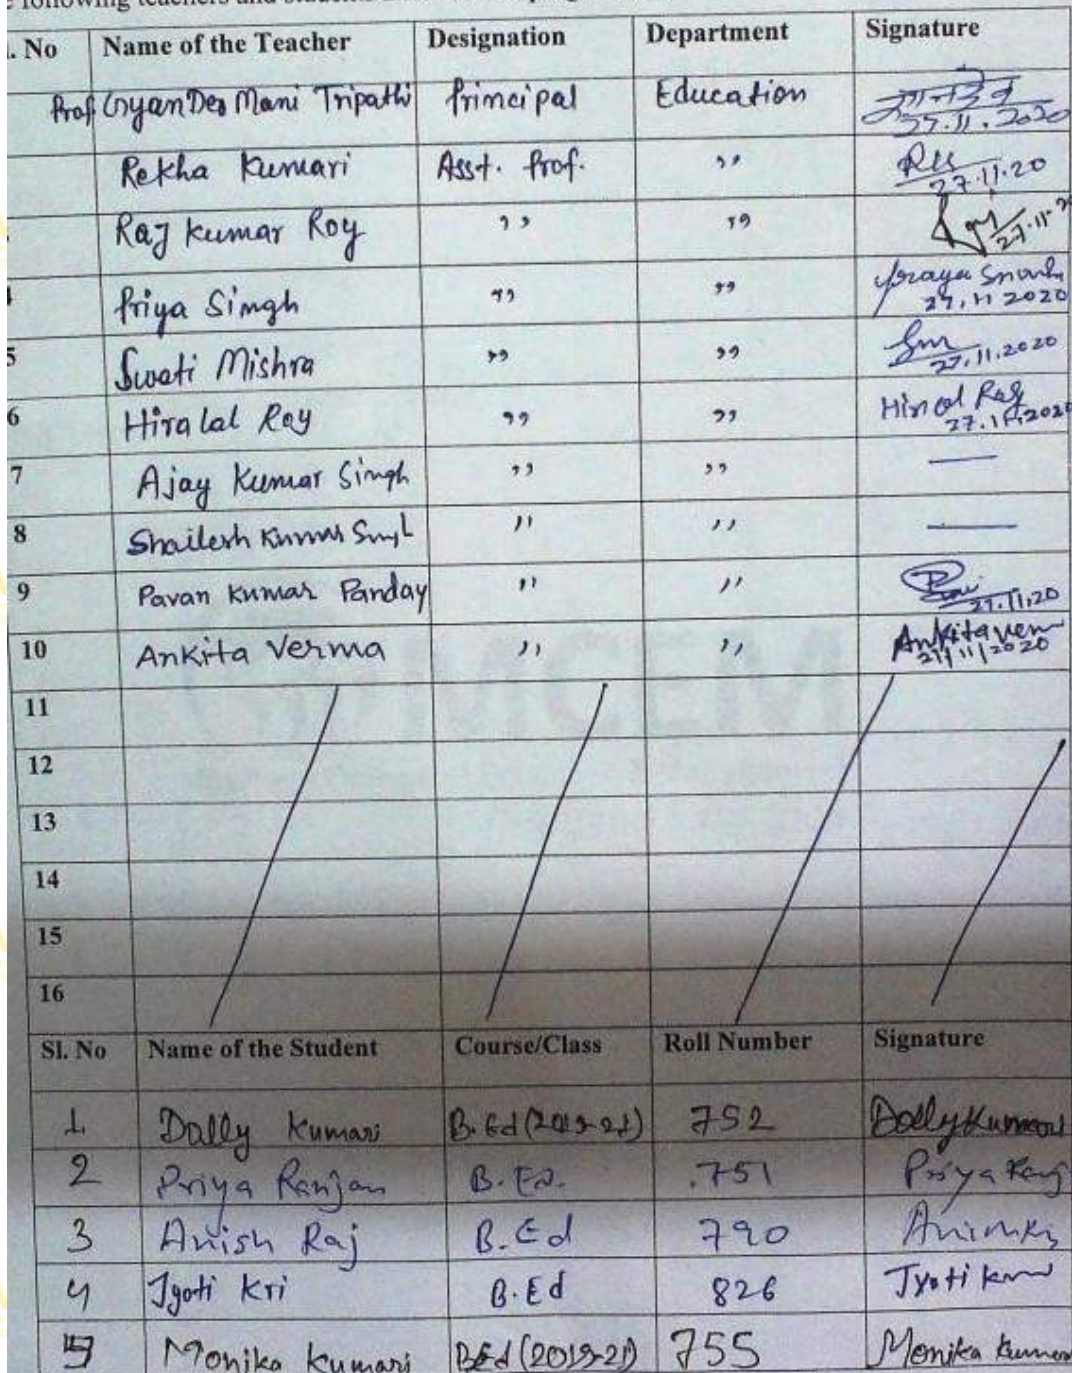 following teachers and students
. No Name of the Teacher Designation Department Signature
Prof. Gyan Deo Mani Tripathi Principal Education ज्ञानदेव 27.11.2020
Rekha Kumari Asst. Prof. ,, 27.11.20
Raj Kumar Roy ,, ,, 27.11.
Priya Singh ,, ,, 27.11 2020
5 Swati Mishra ,, ,, 27.11.2020
6 Hiralal Roy ,, ,, 27.11.2020
7 Ajay Kumar Singh ,, ,, —
8 Shailesh Kumar Singh ,, ,, —
9 Pavan Kumar Panday ,, ,, 27.11.20
10 Ankita Verma ,, ,, Ankita verm 27/11/2020
11
12
13
14
15
16
Sl. No Name of the Student Course/Class Roll Number Signature
1 Dally Kumari B.Ed (2019-21) 752 Dolly Kumari
2 Priya Ranjan B.Ed. 751 Priya Ranj
3 Anish Raj B.Ed 790
4 Jyoti Kri B.Ed 826 Jyoti
5 Monika Kumari B.Ed (2019-21) 755 Monika Kumari